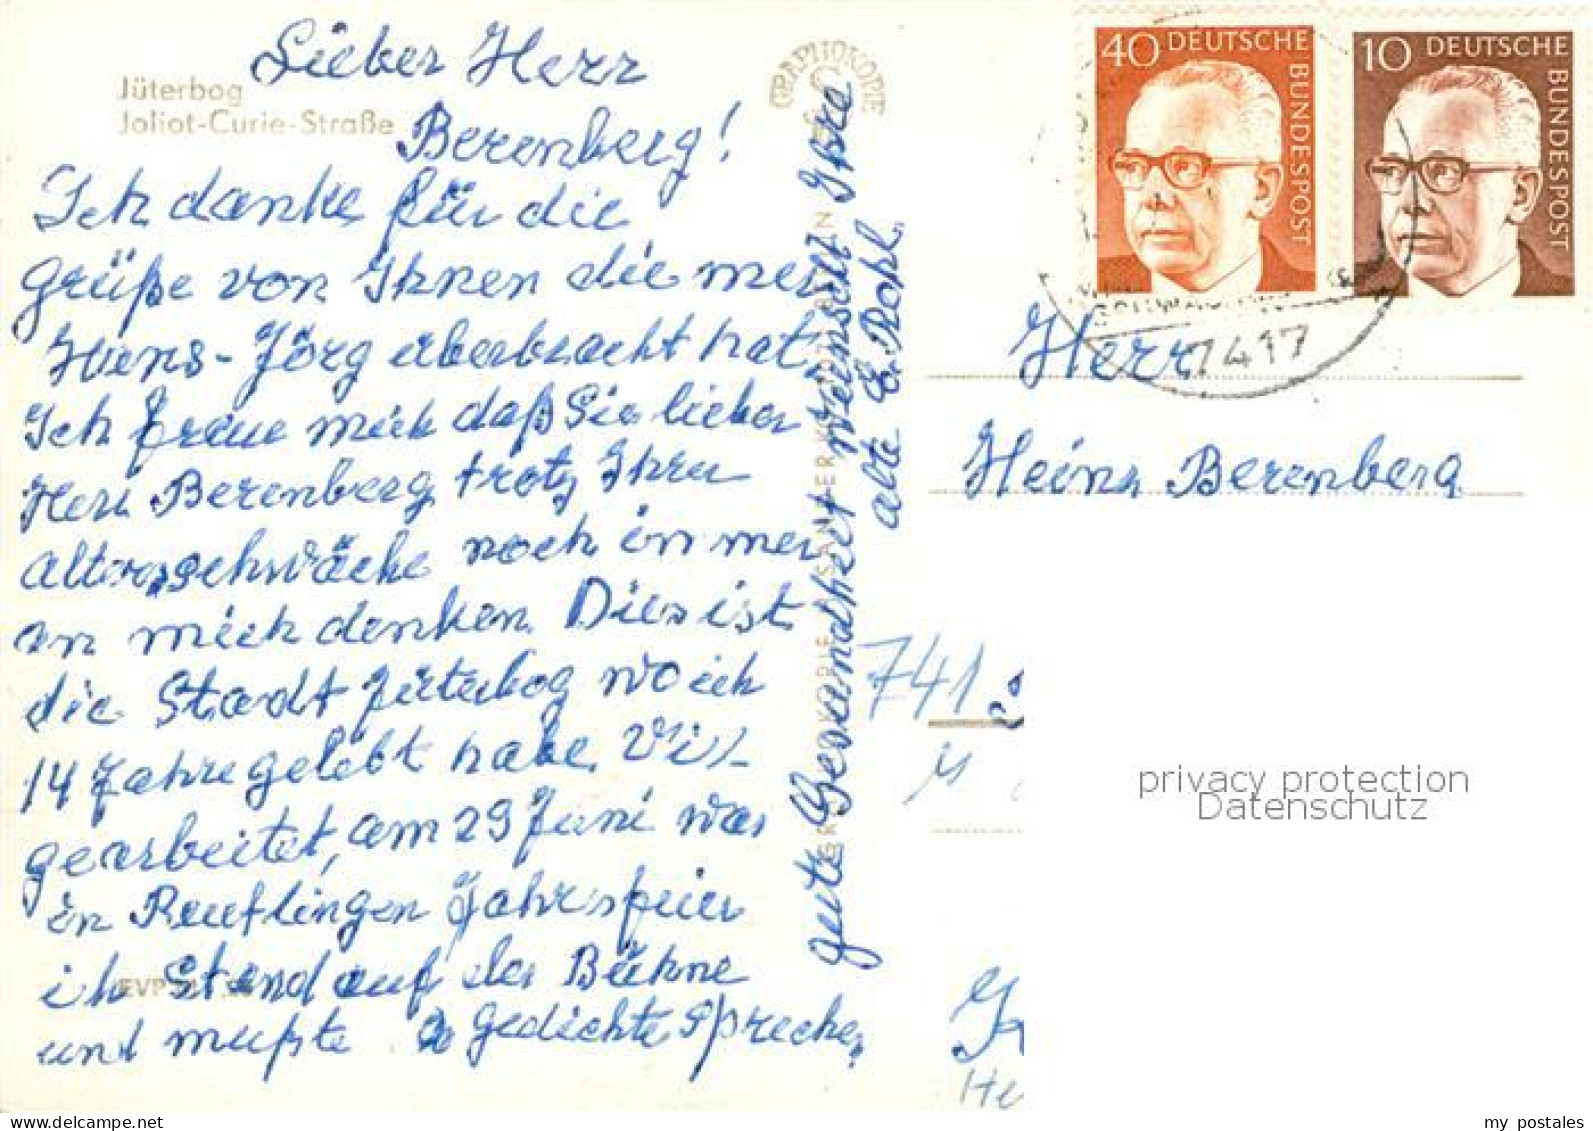 Jüterbog
Joliot-Curie-Straße
Lieber Herr
Berenberg!
Ich danke für die
Grüße von Ihnen die mer
Hans-Jörg überbracht hat,
Ich freue mich daß Sie lieber
Herr Berenberg, trotz Ihrer
Altersschwäche noch immer
an mich denken. Dies ist
die Stadt Jüterbog wo ich
14 Jahre gelebt habe. Viel
gearbeitet, am 29 Juni war
in Reutlingen Jahresfeier
ich Stand auf der Bühne
und mußte 2 Gedichte sprechen,
gute Gesundheit wünscht Ihre
alte E. Rohl.
EVP
GRAPHOKOPIE
40 DEUTSCHE
BUNDESPOST
10 DEUTSCHE
BUNDESPOST
7417
Herr
Heinz Berenberg
741
privacy protection
Datenschutz
my postales